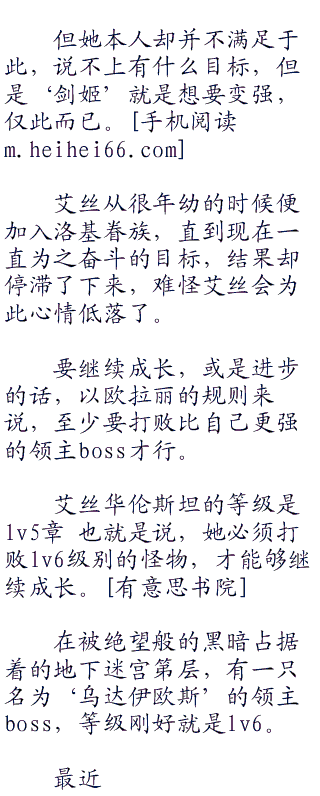 但她本人却并不满足于
此，说不上有什么目标，但
是‘剑姬’就是想要变强，
仅此而已。[手机阅读
m.heihei66.com]
艾丝从很年幼的时候便
加入洛基眷族，直到现在一
直为之奋斗的目标，结果却
停滞了下来，难怪艾丝会为
此心情低落了。
要继续成长，或是进步
的话，以欧拉丽的规则来
说，至少要打败比自己更强
的领主boss才行。
艾丝华伦斯坦的等级是
lv5章 也就是说，她必须打
败lv6级别的怪物，才能够继
续成长。[有意思书院]
在被绝望般的黑暗占据
着的地下迷宫第层，有一只
名为‘乌达伊欧斯’的领主
boss，等级刚好就是lv6。
最近